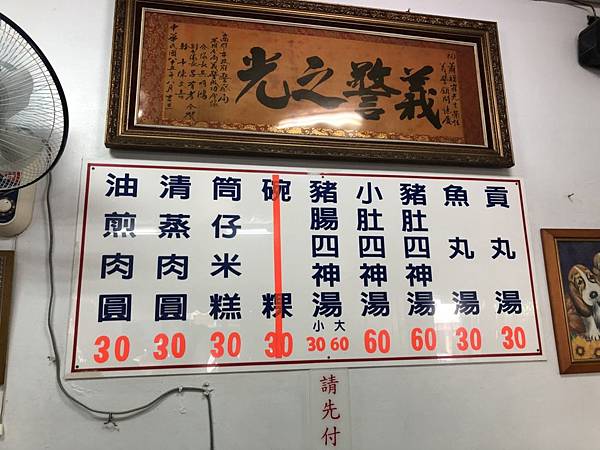 義警之光
貢丸湯 30
魚丸湯 30
豬肚四神湯 60
小肚四神湯 60
豬腸四神湯 大60 小30
碗粿 30
筒仔米糕 30
清蒸肉圓 30
油煎肉圓 30
請先付